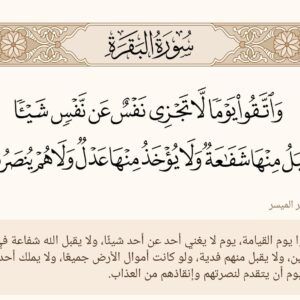 سُورَةُ البَقَرَةِ
وَٱتَّقُوا۟ يَوْمًا لَّا تَجْزِى نَفْسٌ عَن نَّفْسٍ شَيْـًٔا
مِنْهَا شَفَـٰعَةٌ وَلَا يُؤْخَذُ مِنْهَا عَدْلٌ وَلَا هُمْ
الميسر
يوم القيامة، يوم لا يغني أحد عن أحد شيئًا، ولا يقبل الله شفاعة
ولا يقبل منهم فدية، ولو كانت أموال الأرض جميعًا، ولا يملك أحد
أن يتقدم لنصرتهم وإنقاذهم من العذاب.